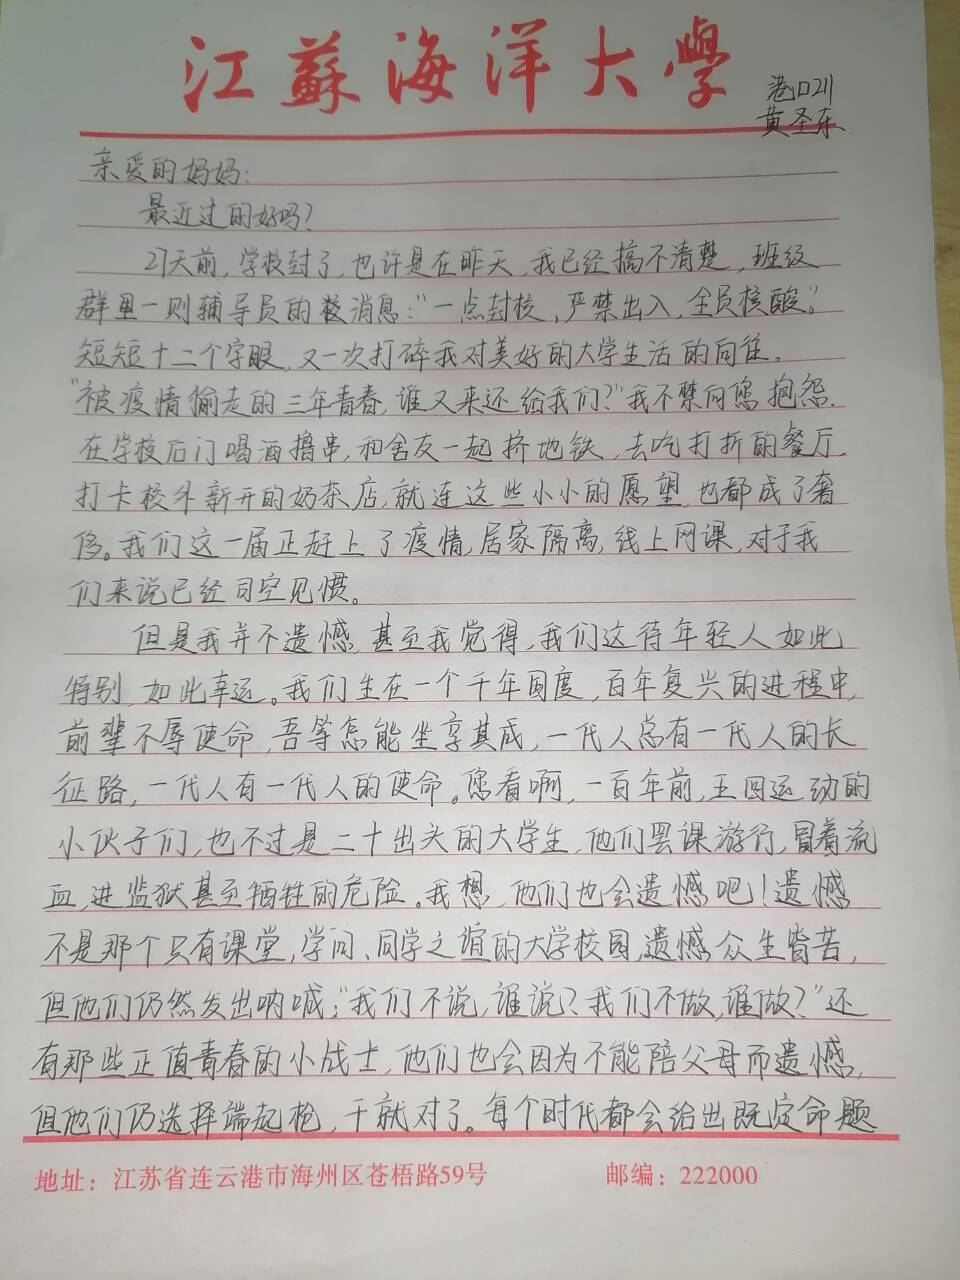 江蘇海洋大學
港口211
黄圣东
亲爱的妈妈:
最近过的好吗?
21天前,学校封了,也许是在昨天,我已经搞不清楚,班级
群里一则辅导员的消息:"一点封校,严禁出入,全员核酸。"
短短十二个字眼,又一次打碎我对美好的大学生活的向往。
"被疫情偷走的三年青春,谁又来还给我们?"我不禁向您抱怨.
在学校后门喝酒撸串,和舍友一起挤地铁,去吃打折的餐厅,
打卡校外新开的奶茶店,就连这些小小的愿望,也都成了奢
侈。我们这一届正赶上了疫情,居家隔离,线上网课,对于我
们来说已经司空见惯。
但是我并不遗憾,甚至我觉得,我们这待年轻人如此
特别,如此幸运。我们生在一个千年国度,百年复兴的进程中,
前辈不辱使命,吾等怎能坐享其成,一代人总有一代人的长
征路,一代人有一代人的使命。您看啊,一百年前,五四运动的
小伙子们,也不过是二十出头的大学生,他们罢课游行,冒着流
血,进监狱甚至牺牲的危险。我想,他们也会遗憾吧!遗憾
不是那个只有课堂,学问、同学之谊的大学校园,遗憾众生皆苦,
但他们仍然发出呐喊:"我们不说,谁说?我们不做,谁做?"还
有那些正值青春的小战士,他们也会因为不能陪父母而遗憾,
但他们仍选择端起枪,干就对了。每个时代都会给出既定命题
地址:江苏省连云港市海州区苍梧路59号 邮编:222000